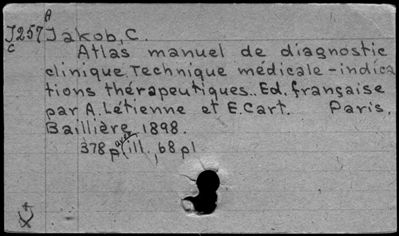 A
J257 Jakob, C.
C
Atlas manuel de diagnostic
clinique. Technique médicale-indica
tions thérapeutiques.. Ed. française
par A. Létienne et E. Cart. Paris,
Baillière, 1898.
avec
378 p. ill., 68 pl